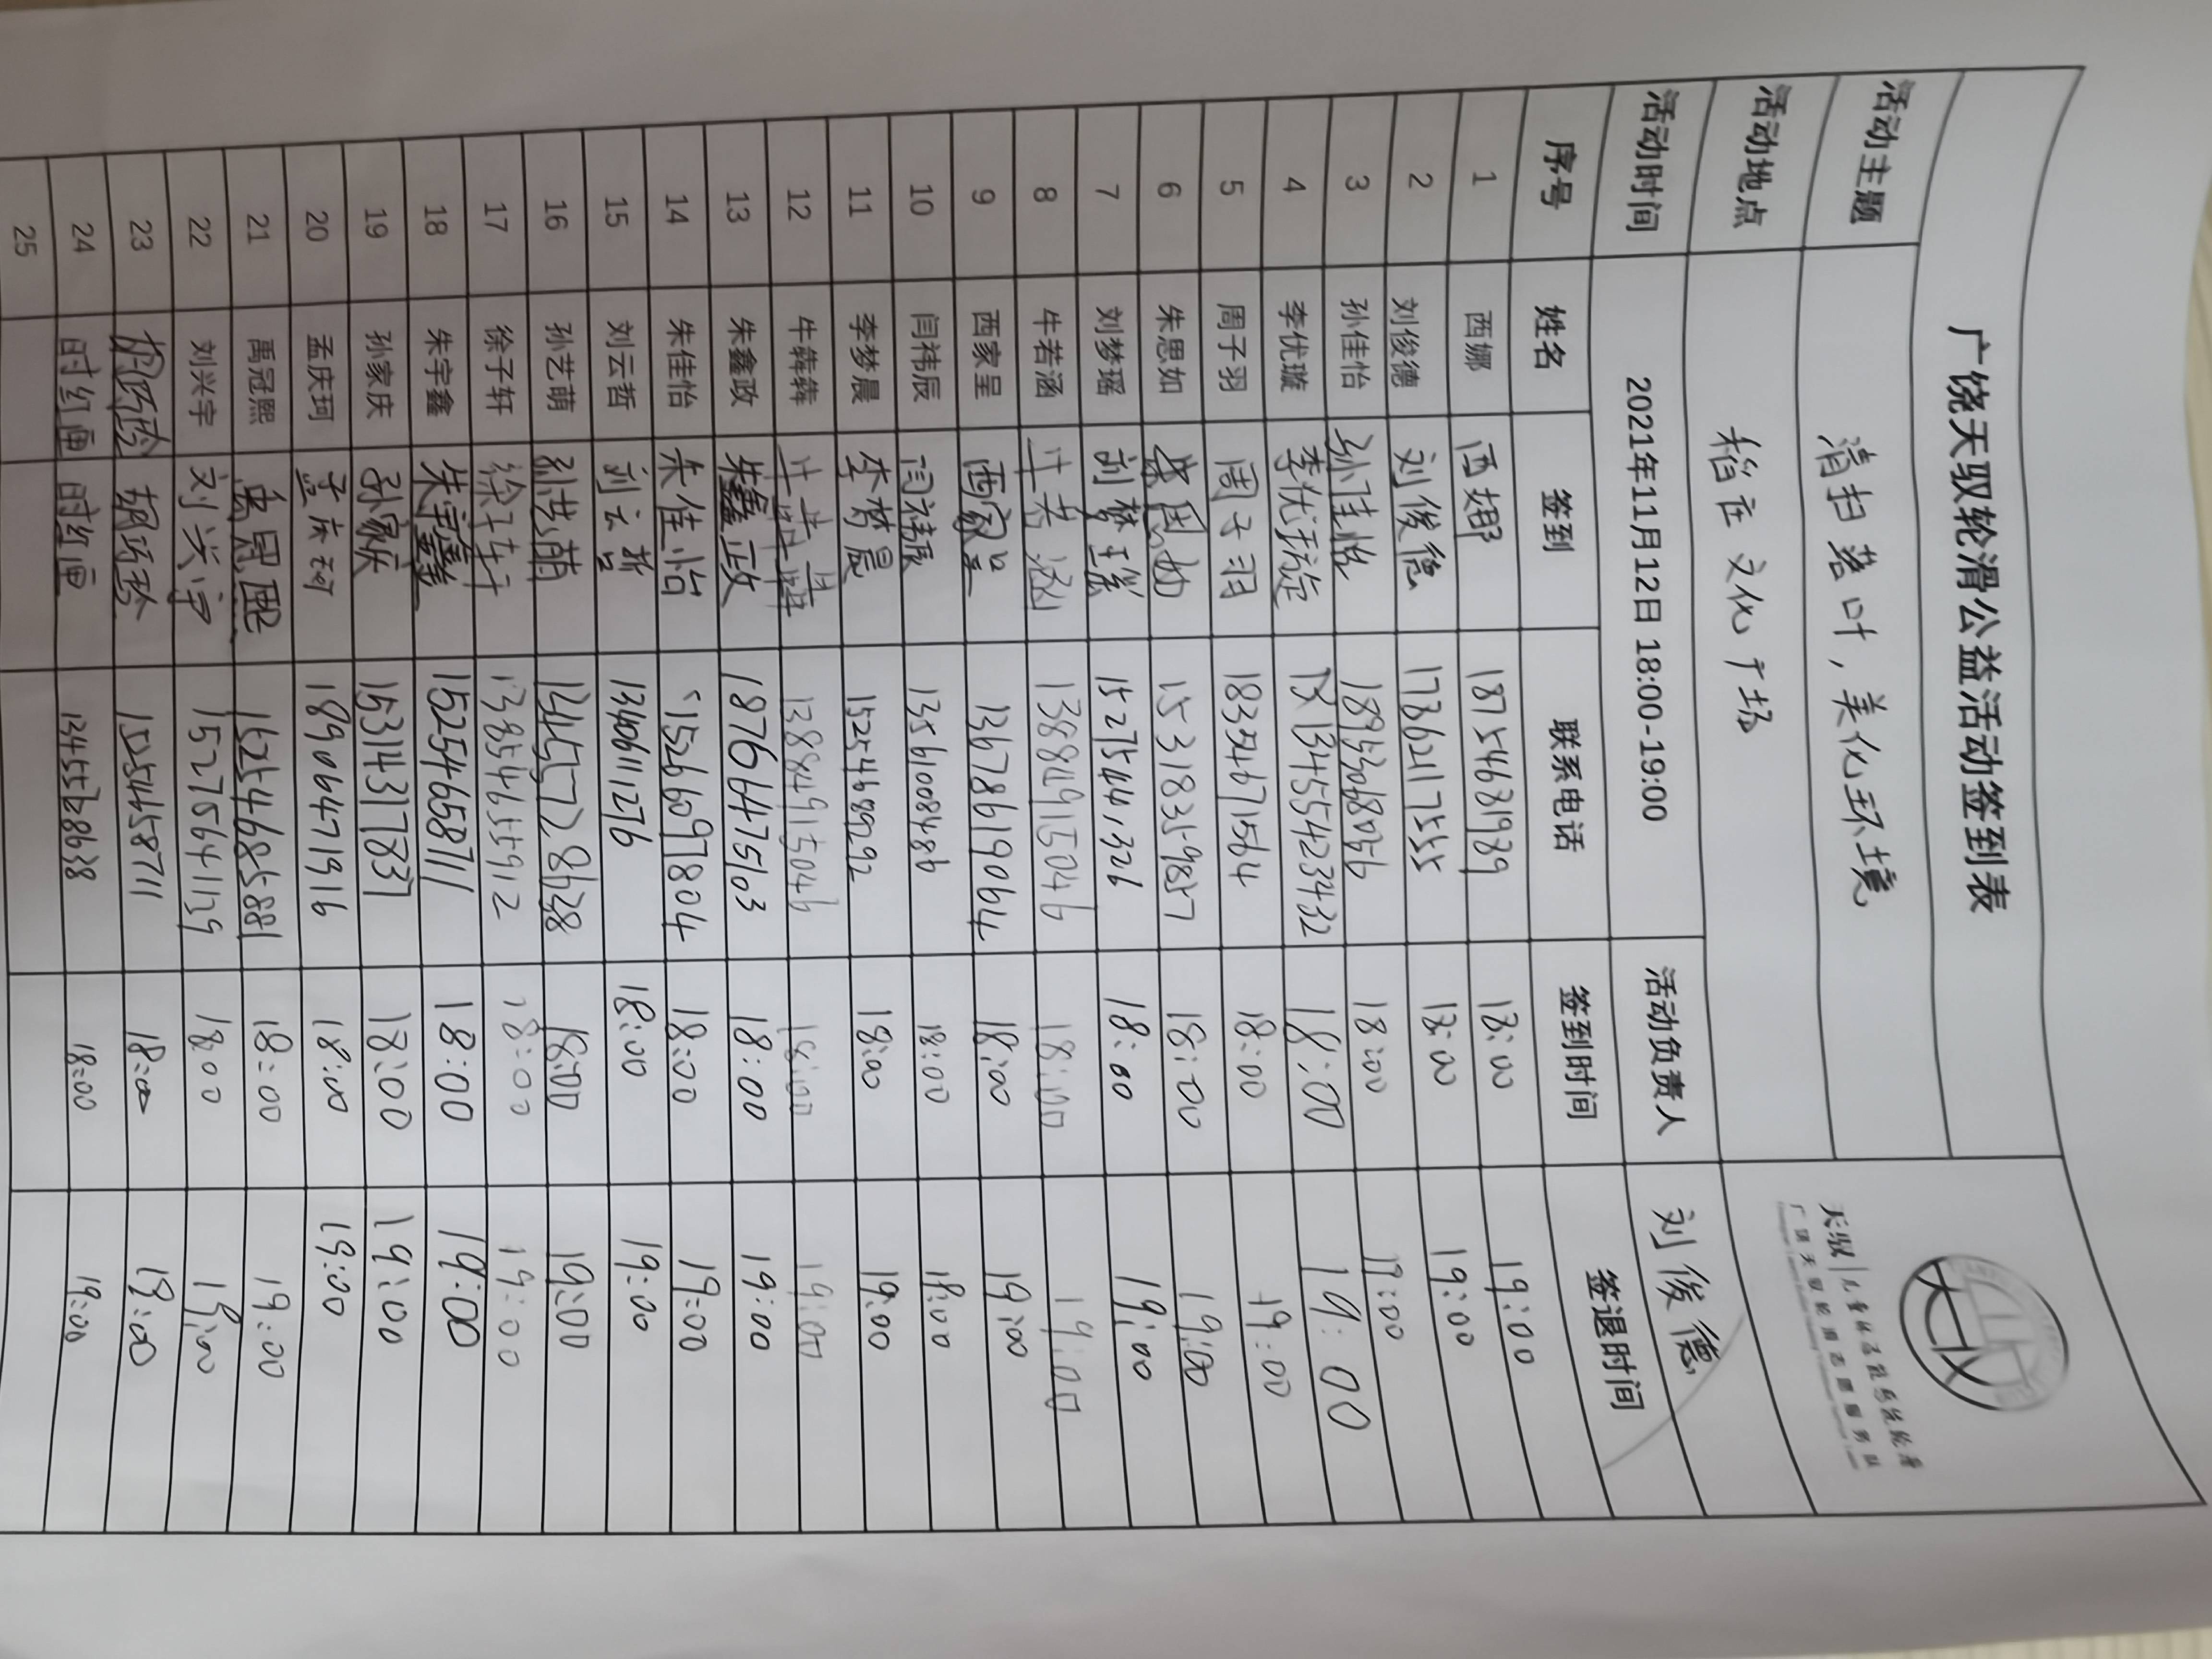 广饶天驭轮滑公益活动签到表
活动主题 清扫落叶，美化环境
活动地点 稻庄文化广场
活动时间 2021年11月12日 18:00-19:00 活动负责人 刘俊德
序号 姓名 签到 联系电话 签到时间 签退时间
1 西娜 西娜 18754631989 18:00 19:00
2 刘俊德 刘俊德 17862117555 18:00 19:00
3 孙佳怡 孙佳怡 18:00 19:00
4 李优璇 李优璇 18:00 19:00
5 周子羽 周子羽 18354671564 18:00 19:00
6 朱思如 朱思如 15318359857 18:00 19:00
7 刘梦瑶 刘梦瑶 15275441326 18:00 19:00
8 牛若涵 牛若涵 13884915046 18:00 19:00
9 西家呈 西家呈 13678619064 18:00 19:00
10 闫祎辰 闫祎辰 13561008486 18:00 19:00
11 李梦晨 李梦晨 15254689292 18:00 19:00
12 牛犇犇 牛犇犇 13884915046 18:00 19:00
13 朱鑫政 朱鑫政 18766475103 18:00 19:00
14 朱佳怡 朱佳怡 15266097804 18:00 19:00
15 刘云哲 刘云哲 13406111276 18:00 19:00
16 孙艺萌 孙艺萌 13455728638 18:00 19:00
17 徐子轩 徐子轩 13854655912 18:00 19:00
18 朱宇鑫 朱宇鑫 15254658711 18:00 19:00
19 孙家庆 孙家庆 15314317831 18:00 19:00
20 孟庆珂 孟庆珂 18906471916 18:00 19:00
21 禹冠熙 禹冠熙 15254685881 18:00 19:00
22 刘兴宇 刘兴宇 15275641139 18:00 19:00
23 胡巧玲 胡巧玲 15254658711 18:00 19:00
24 时红画 时红画 13455728638 18:00 19:00
25